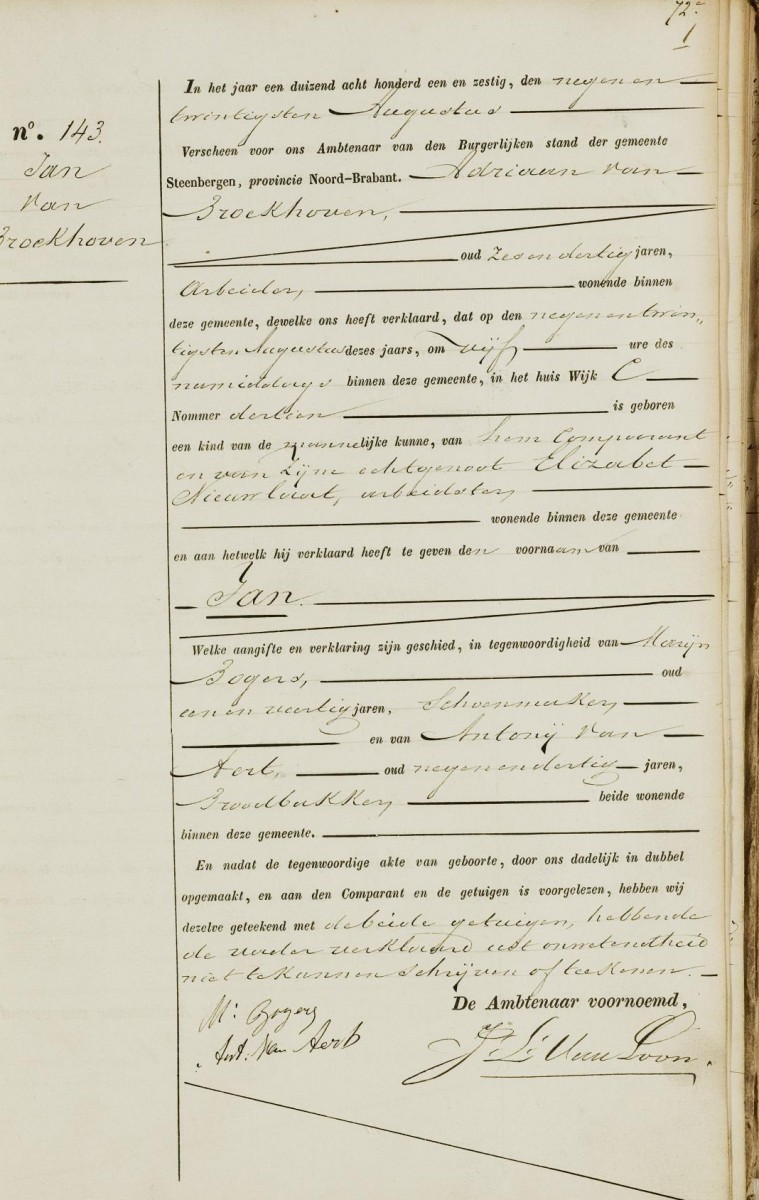 72e
1
nº. 143.
Jan
van
Broekhoven
In het jaar een duizend acht honderd een en zestig, den negen en
twintigsten Augustus
Verscheen voor ons Ambtenaar van den Burgerlijken stand der gemeente
Steenbergen, provincie Noord-Brabant. Adriaan van
Broekhoven,
oud zes en dertig jaren,
Arbeider, wonende binnen
deze gemeente, dewelke ons heeft verklaard, dat op den negen en twin„
tigsten Augustus dezes jaars, om vijf ure des
namiddags binnen deze gemeente, in het huis Wijk C
Nommer dertien is geboren
een kind van de mannelijke kunne, van hem Comparant
en van zijne echtgenoot Elizabet
Nieuwlaat, arbeidster,
wonende binnen deze gemeente
en aan hetwelk hij verklaard heeft te geven den voornaam van
Jan.
Welke aangifte en verklaring zijn geschied, in tegenwoordigheid van Marijn
Bogers, oud
een en veertig jaren, Schoenmaker,
en van Antonij van
Aert, oud negen en dertig jaren,
Broodbakker, beide wonende
binnen deze gemeente.
En nadat de tegenwoordige akte van geboorte, door ons dadelijk in dubbel
opgemaakt, en aan den Comparant en de getuigen is voorgelezen, hebben wij
dezelve geteekend met de beide getuigen, hebbende
de vader verklaard uit onwetendheid
niet te kunnen schrijven of teekenen.
De Ambtenaar voornoemd,
M: Bogers
Ant: Van Aert
J: L: Van Loon.